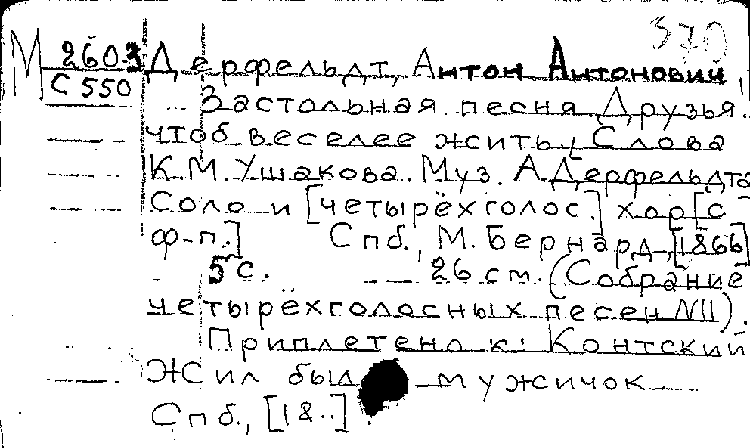 370
М 2603 Дерфельдт, Антон Антонович
С 550 Застольная песня Друзья.
чтоб веселее жить, Слова
К.М. Ушакова. Муз. А Дерфельдта
Соло и [четырёхголос.] хор [с
ф-п.] Спб., М. Бернард, [1866]
5 с. 26 см. (Собрание
четырёхголосных песен №11).
Приплетено к: Контский
Жил был мужичок
Спб., [18..].